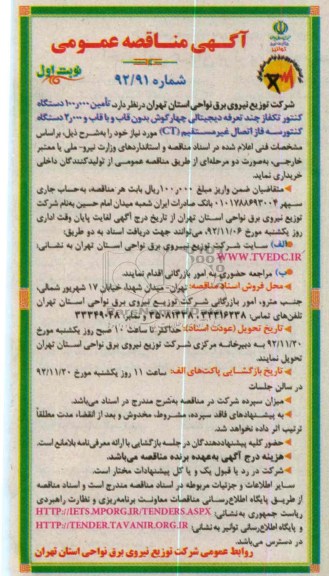 آگهی مناقصه عمومی
نوبت اول
شماره ۹۲/۹۱
شرکت توزیع نیروی برق نواحی استان تهران درنظر دارد، تأمین ۱۰۰٫۰۰۰ دستگاه
کنتور تکفاز چند تعرفه دیجیتالی چهارگوش بدون قاب و با قاب و ۲٫۰۰۰ دستگاه
کنتور سه فاز اتصال غیرمستقیم (CT) مورد نیاز خود را به‌شرح ذیل، براساس
مشخصات فنی اعلام شده در اسناد مناقصه و استانداردهای وزارت نیرو- ملی یا معتبر
خارجی، به‌صورت دو مرحله‌ای از طریق مناقصه عمومی از تولیدکنندگان داخلی
خریداری نماید.
متقاضیان ضمن واریز مبلغ ۱۰۰٫۰۰۰ ریال بابت هر مناقصه، به‌حساب جاری
سپهر ۰۱۰۱۷۸۸۶۹۳۰۰۴ بانک صادرات ایران شعبه میدان امام حسین به‌نام شرکت
توزیع نیروی برق نواحی استان تهران از تاریخ درج آگهی لغایت پایان وقت اداری
روز یکشنبه مورخ ۹۲/۱۱/۰۶، می‌توانند جهت دریافت اسناد به دو طریق:
الف) سایت شرکت توزیع نیروی برق نواحی استان تهران به نشانی:
WWW.TVEDC.IR
ب) مراجعه حضوری به امور بازرگانی اقدام نمایند.
محل فروش اسناد مناقصه: تهران- میدان شهدا، خیابان ۱۷ شهریور شمالی،
جنب مترو، امور بازرگانی شرکت توزیع نیروی برق نواحی استان تهران
تاریخ تحویل (عودت اسناد): حداکثر تا ساعت ۱۰ صبح روز یکشنبه مورخ
۹۲/۱۱/۲۰ به دبیرخانه مرکزی شرکت توزیع نیروی برق نواحی استان تهران
تحویل نمایند.
تاریخ بازگشایی پاکت‌های الف: ساعت ۱۱ روز یکشنبه مورخ ۹۲/۱۱/۲۰
در سالن جلسات
میزان سپرده شرکت در مناقصه به‌شرح مندرج در اسناد می‌باشد.
به پیشنهادهای فاقد سپرده، مشروط، مخدوش و بعد از انقضاء مدت مطلقاً
ترتیب اثر داده نخواهد شد.
حضور کلیه پیشنهاددهندگان در جلسه بازگشایی با ارائه معرفی‌نامه بلامانع است.
هزینه درج آگهی به‌عهده برنده مناقصه می‌باشد.
شرکت در رد یا قبول یک و یا کل پیشنهادات مختار است.
سایر اطلاعات و جزئیات مربوطه در اسناد مناقصه مندرج است و اسناد مناقصه
از طریق پایگاه اطلاع‌رسانی مناقصات معاونت برنامه‌ریزی و نظارت راهبردی
ریاست جمهوری به‌نشانی: HTTP://IETS.MPORG.IR/TENDERS.ASPX
و پایگاه اطلاع‌رسانی توانیر به‌نشانی: HTTP://TENDER.TAVANIR.ORG.IR
در دسترس می‌باشد.
روابط عمومی شرکت توزیع نیروی برق نواحی استان تهران